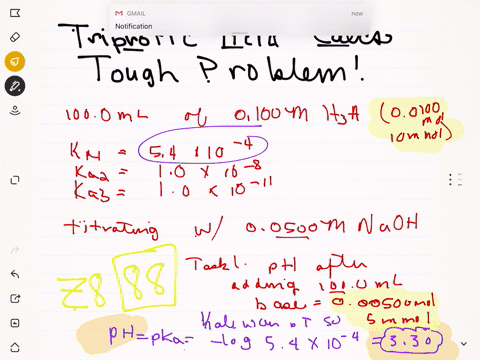 GMAIL
now
Notification
Triprotic Acid
Tough Problem!
100.0 mL of 0.100 M H3A (0.0100 mol
10 mmol)
Ka1 = 5.4 x 10^-4
Ka2 = 1.0 x 10^-8
Ka3 = 1.0 x 10^-11
titrating w/ 0.0500 M NaOH
Task 1. pH after
adding 100.0 mL
base = 0.00500 mol
5 mmol
Z8 88
pH = pKa = -log 5.4 x 10^-4 = 3.30